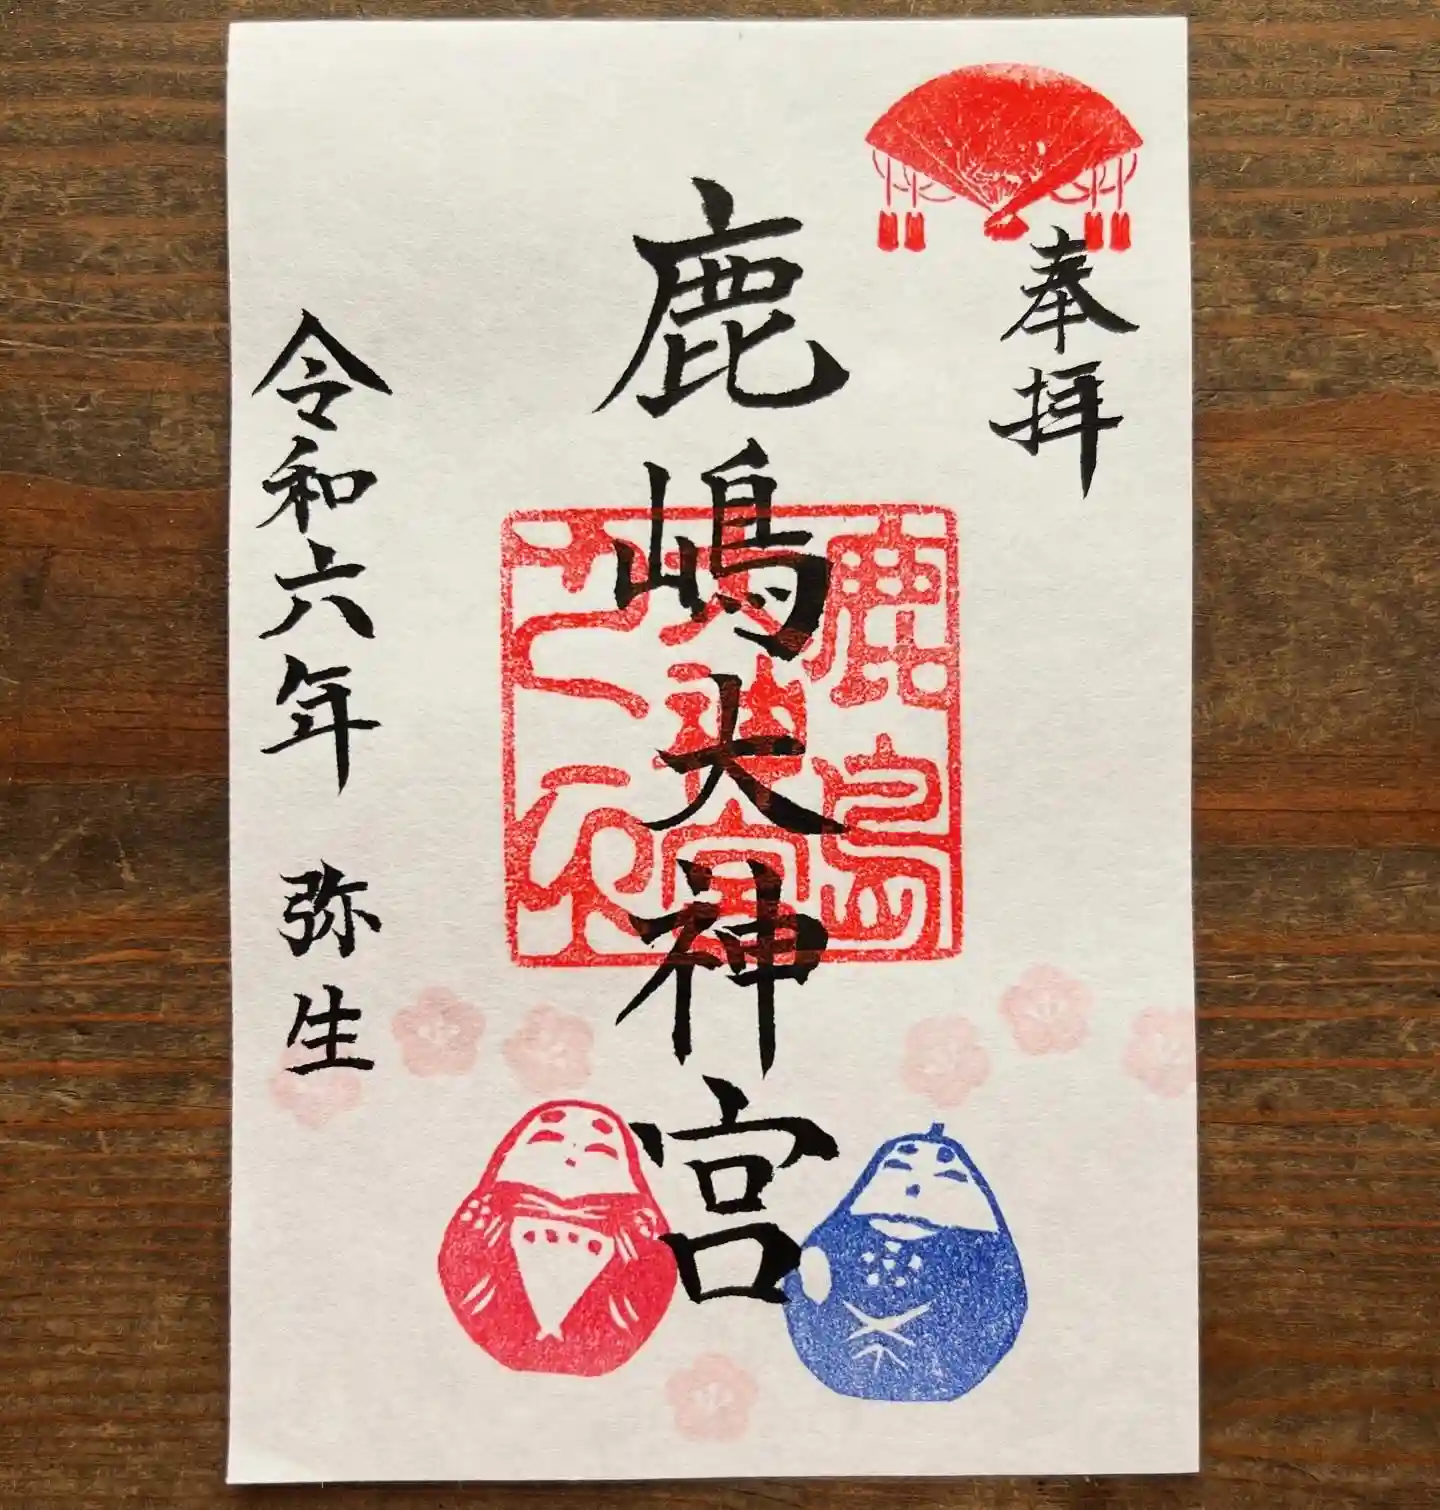 奉拝
鹿嶋大神宮
鹿島
大神宮
之印
令和六年 弥生